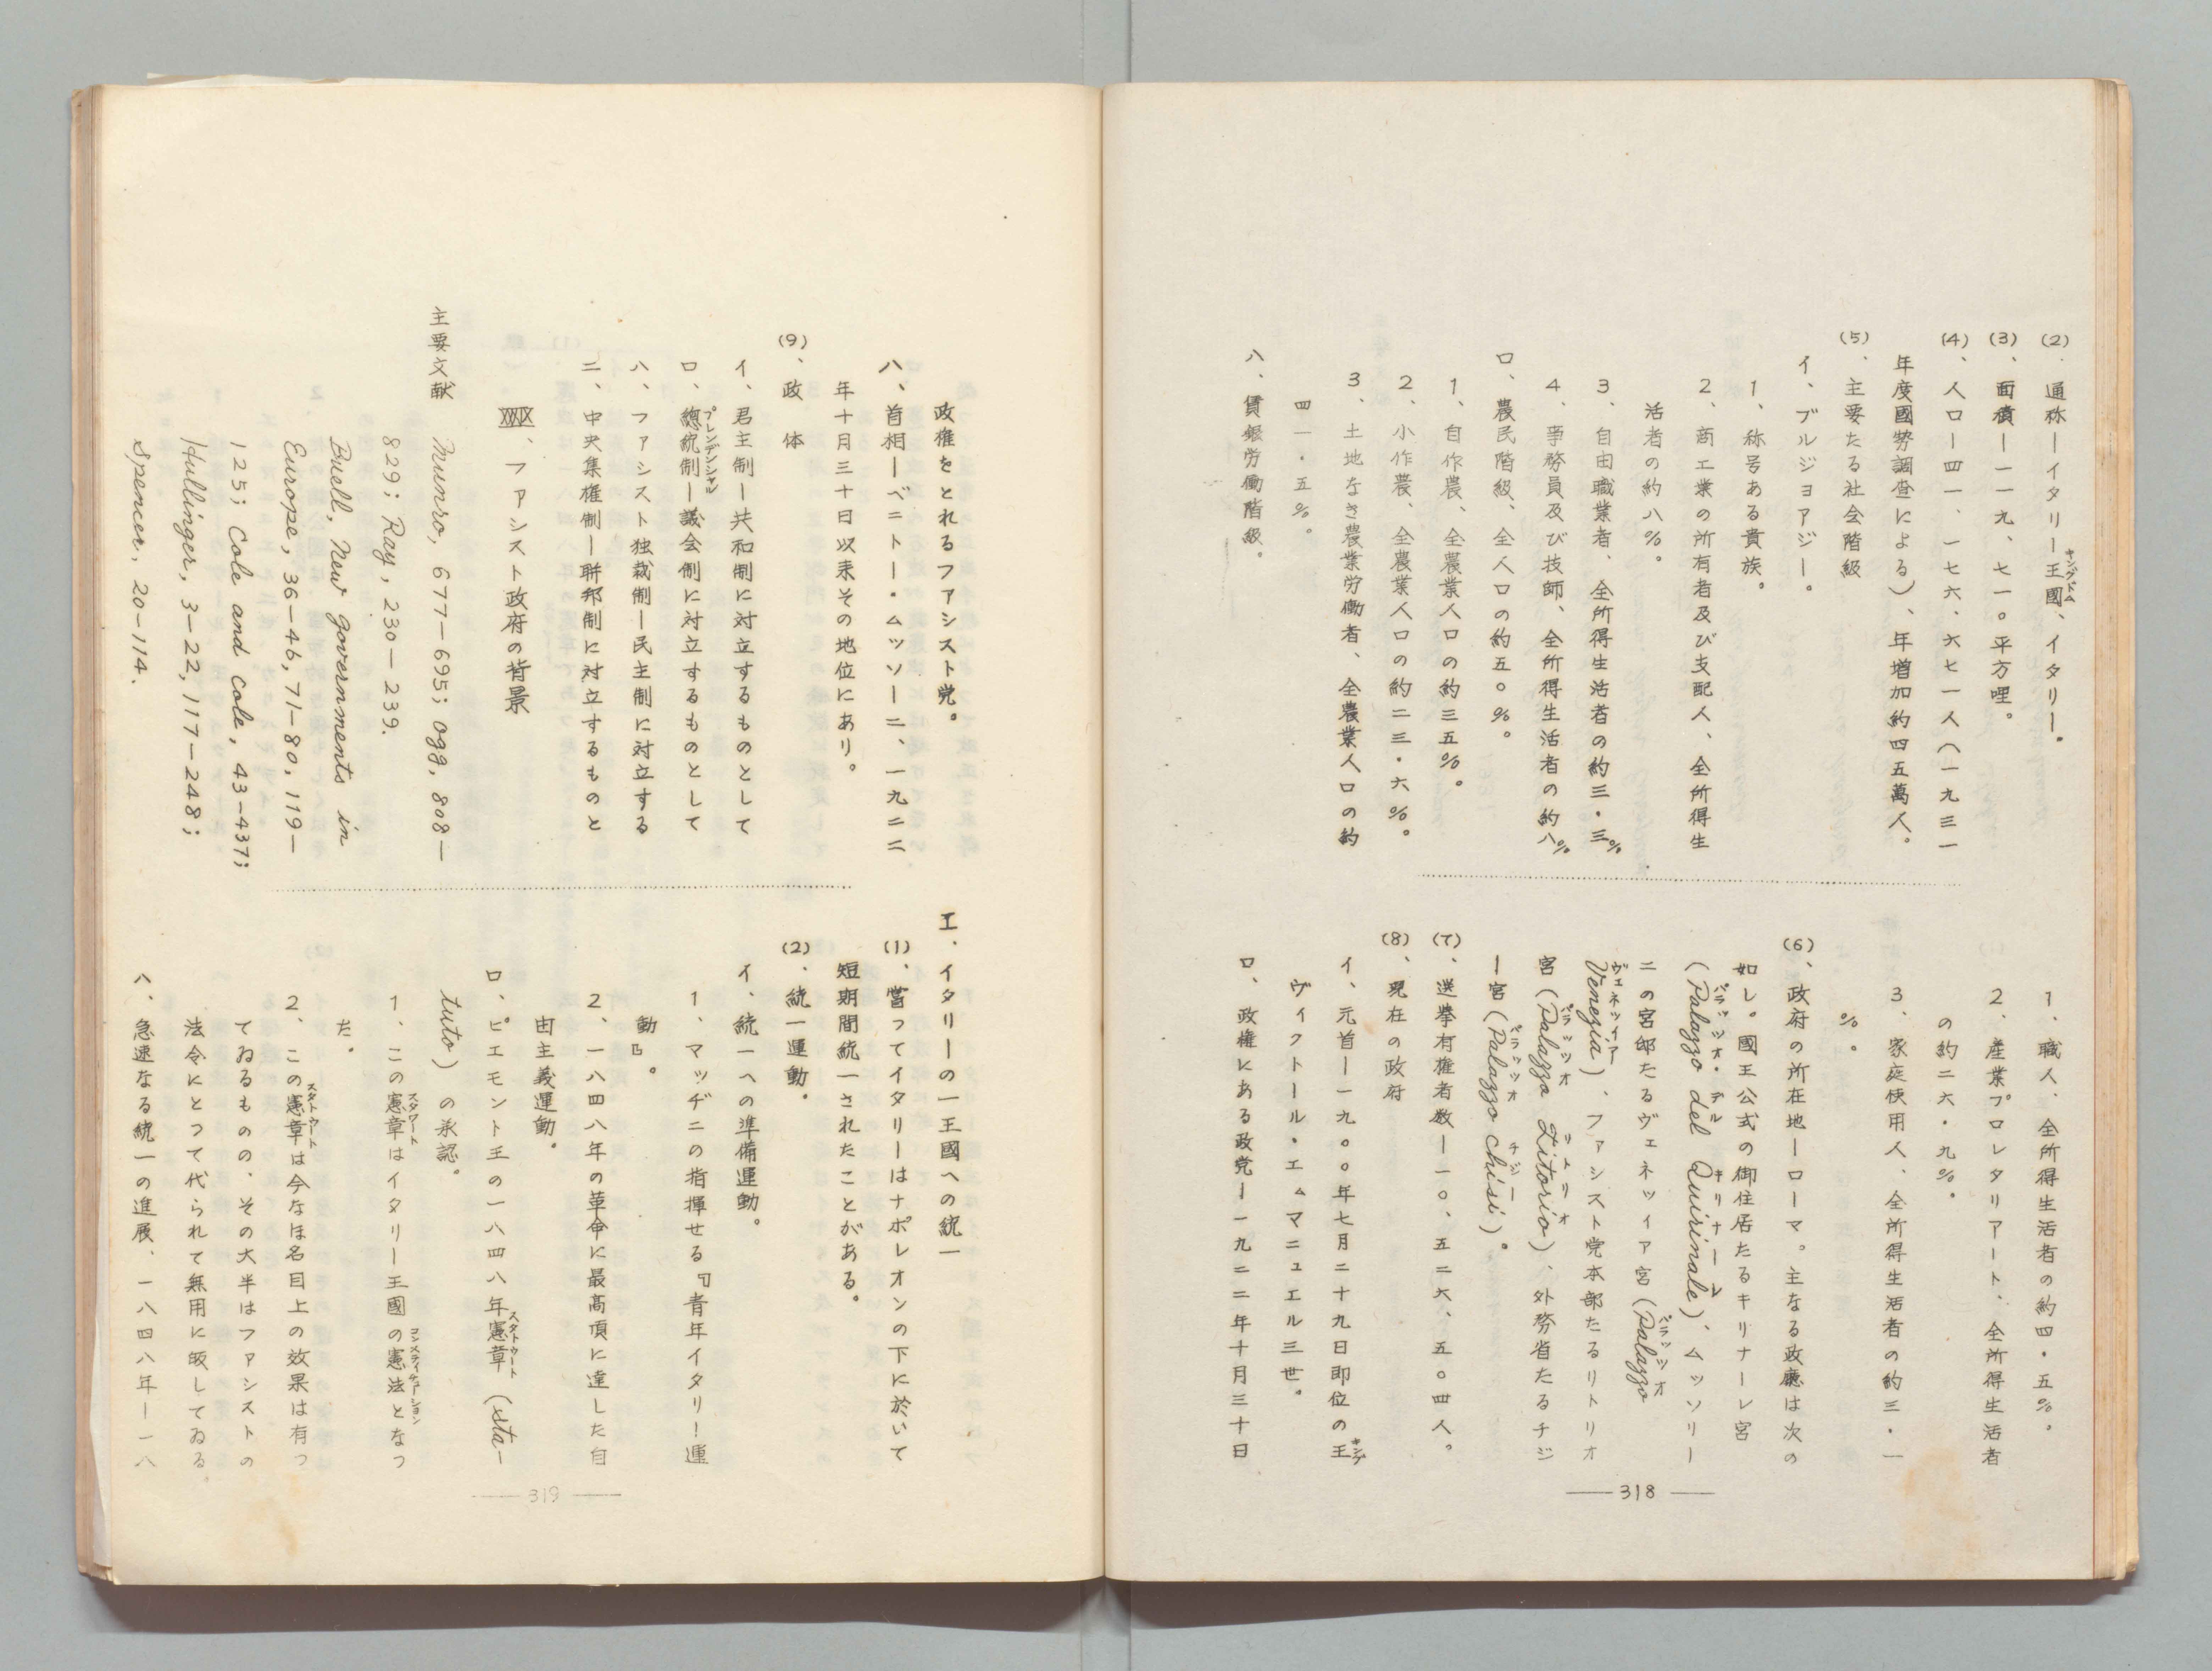 (2)、通称―イタリー王國、イタリー。
キングドム
(3)、面積―一一九、七一〇平方哩。
(4)、人口―四一、一七六、六七一人(一九三一
年度國勢調査による)、年増加約四五萬人。
(5)、主要たる社会階級
イ、ブルジョアジー。
1、称号ある貴族。
2、商工業の所有者及び支配人、全所得生
活者の約八%。
3、自由職業者、全所得生活者の約三・三%
4、事務員及び技師、全所得生活者の約八%
ロ、農民階級、全人口の約五〇%。
1、自作農、全農業人口の約三五%。
2、小作農、全農業人口の約二三・六%。
3、土地なき農業労働者、全農業人口の約
四一・五%。
ハ、賃銀労働階級。
1、職人、全所得生活者の約四・五%。
2、産業プロレタリアート、全所得生活者
の約二六・九%。
3、家庭使用人、全所得生活者の約三・一
%。
(6)、政府の所在地―ローマ。主なる政廳は次の
如し。國王公式の御住居たるキリナーレ宮
(Palazzo del Quirinale)、ムッソリー
パラッジオ・デル キリナーレ
ニの宮邸たるヴェネッィア宮(Palazzo
パラッジオ
Venezia)、ファシスト党本部たるリトリオ
ヴェネッイアー
宮(Palazzo Litorio)、外務省たるチジ
パラッジオ リトリオ
ー宮(Palazzo chisi)。
パラッジオ チジー
(7)、選挙有権者数―一〇、五二六、五〇四人。
(8)、現在の政府
イ、元首―一九〇〇年七月二十九日即位の王
キング
ヴィクトール・エムマニュエル三世。
ロ、政権にある政党―一九二二年十月三十日
―318―
政権をとれるファシスト党。
ハ、首相―ベニトー・ムッソーニ、一九二二
年十月三十日以来その地位にあり。
(9)、政 体
イ、君主制―共和制に対立するものとして
ロ、總統制―議会制に対立するものとして
プレンデンシャル
ハ、ファシスト独裁制―民主制に対立する
二、中央集権制―聯邦制に対立するものと
XXIX、ファシスト政府の背景
主要文献 Munro, 677―695; Ogg, 808―
829; Ray, 230―239.
Buell, New Governments in
Europe, 36―46, 71―80, 119―
125; Cole and Cole, 43―437;
Hullinger, 3―22, 117―248;
Spencer, 20―114.
エ、イタリーの一王國への統一
(1)、嘗ってイタリーはナポレオンの下に於いて
短期間統一されたことがある。
(2)、統一運動。
イ、統一への準備運動。
1、マッヂニの指揮せる『青年イタリー運
動』。
2、一八四八年の革命に最高頂に達した自
由主義運動。
ロ、ピエモント王の一八四八年憲章 (sta-
スタトウート
tuto) の承認。
1、この憲章はイタリー王國の憲法となつ
スタワート コンスティチューション
た。
2、この憲章は今なほ名目上の效果は有つ
スタトウート
てゐるものの、その大半はファシストの
法令にとつて代られて無用に皈してゐる。
ハ、急速なる統一の進展、一八四八年―一八
―319―